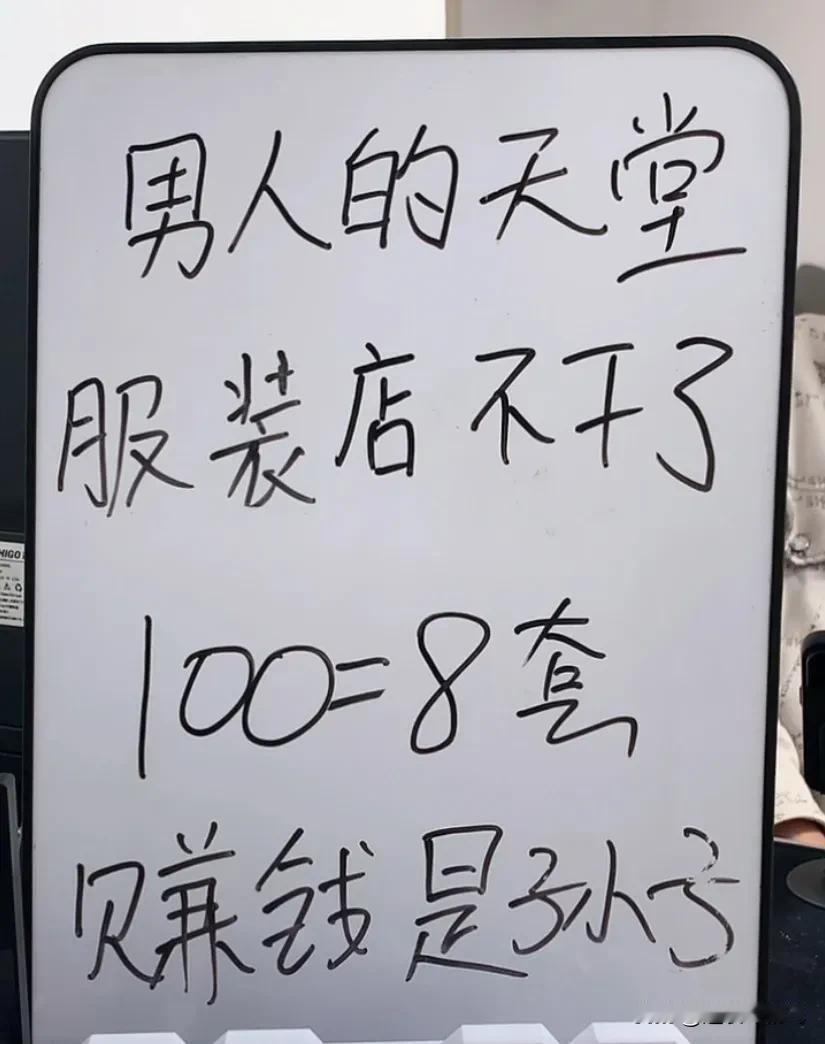 男人的天堂
服装店不干了
100=8套
赚钱是孙子
HIGO